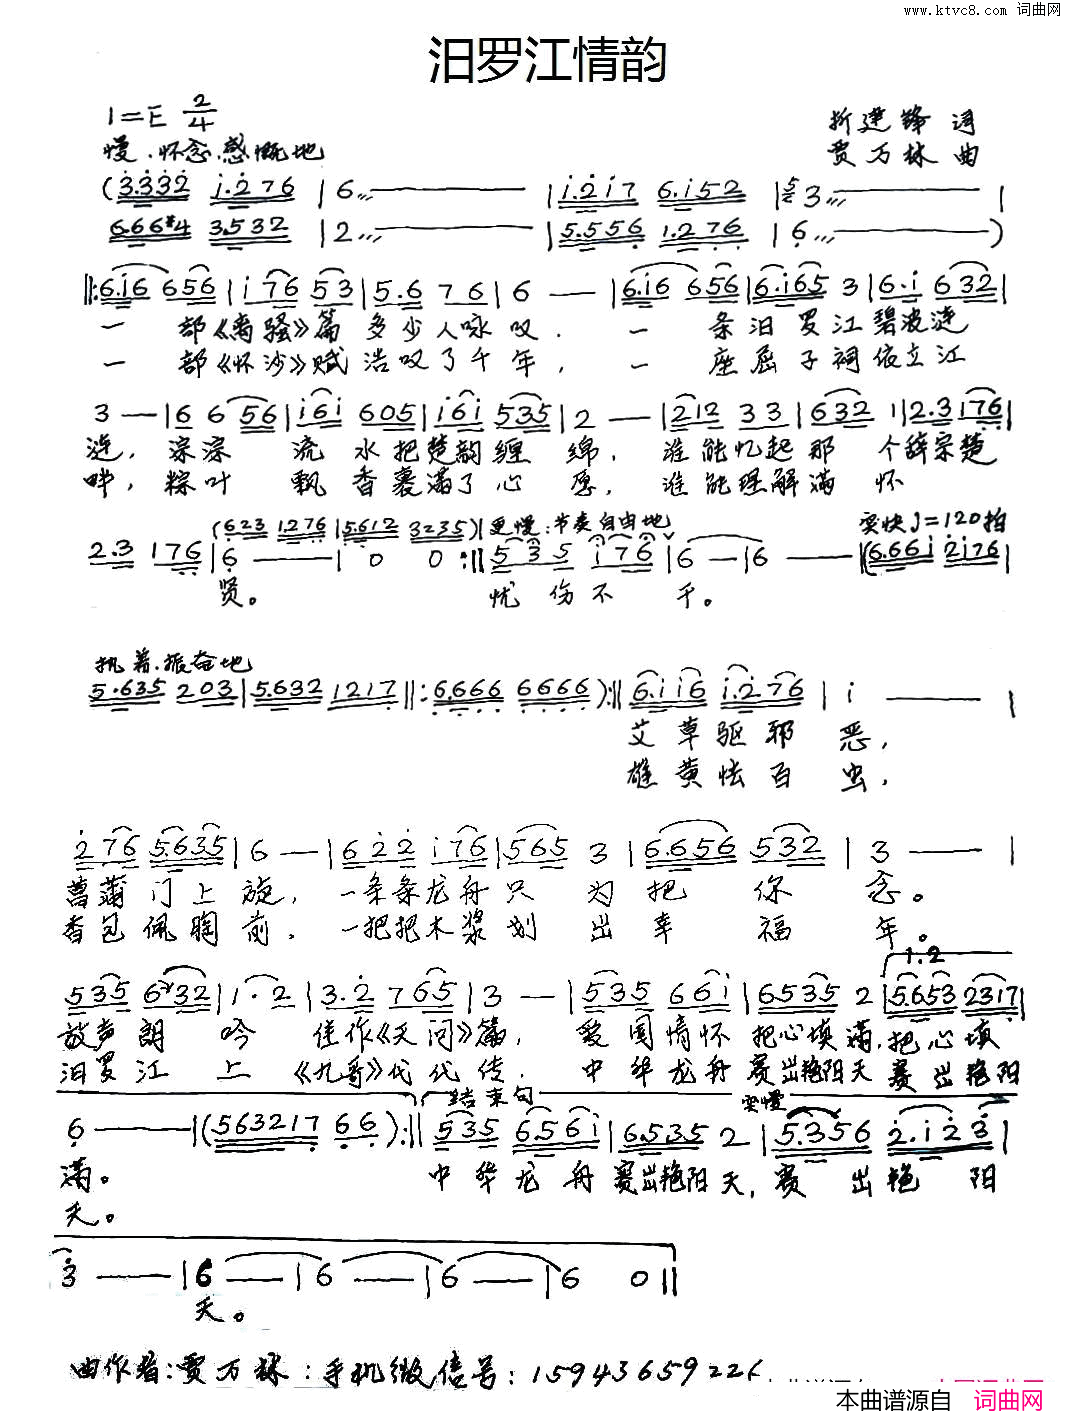 www.ktvc8.com 词曲网
汨罗江情韵
1=E 2/4
慢.怀念.感慨地
靳建锋 词
贾万林 曲
(3.332 i.276 | 6 —— | i.2i7 6.i52 | 3 —— |
6.66#4 3.532 | 2 —— | 5.556 1.276 | 6 —— )
‖:6.i6 656 | i76 53 | 5.6 76 | 6 — | 6.i6 656 | 6.i65 3 | 6.i 632 |
一 部《离骚》篇 多少人咏叹. 一 条汨罗江碧波涟
一 部《怀沙》赋浩叹了千年, 一 座屈子祠依立江
3 — | 6 6 56 | i6i 605 | i6i 535 | 2 — | 212 33 | 632 1 | 2.3 176 |
涟, 淙淙 流水把楚韵缠绵, 谁能忆起那 个辞宗楚
畔, 粽叶 飘香裹满了心愿, 谁能理解满 怀
(623 1.276 | 5.612 3235) 更慢:节奏自由地 突快♩=120拍
2.3 176 | 6 —— | 0 0 :‖ 5 3 5 i76 | 6 — | 6 — | (6.66i 2i76 |
贤。 忧伤不 干。
执着.振奋地
5.635 203 | 5.632 1217 ‖: 6.666 6666 ):‖ 6.ii6 i.276 | i —— |
艾草驱邪恶,
雄黄怯百虫,
276 5.635 | 6 — | 622 i76 | 565 3 | 6.656 532 | 3 — |
菖蒲门上旋, 一条条龙舟只 为把 你 念。
香包佩胸前, 一把把木浆划 出幸 福 年。
1.2
535 6332 | 1.2 | 3.2 765 | 3 — | 535 66i | 6.535 2 | 5.653 2317 |
放声朗 吟 佳作《天问》篇, 爱国情怀把心填满,把心填
汨罗江 上 《九哥》代代传, 中华龙舟赛出艳阳天赛出艳阳
结束句 突慢
6 —— | (563217 66):‖ 535 6.56i | 6.535 2 | 5.356 2.i23 |
满。 中华龙舟赛出艳阳天,赛 出艳 阳
天。
3 —— | 6 — | 6 — | 6 — | 6 0 ‖
天。
曲作者:贾万林:手机微信号:1594365922
本曲谱源自 词曲网